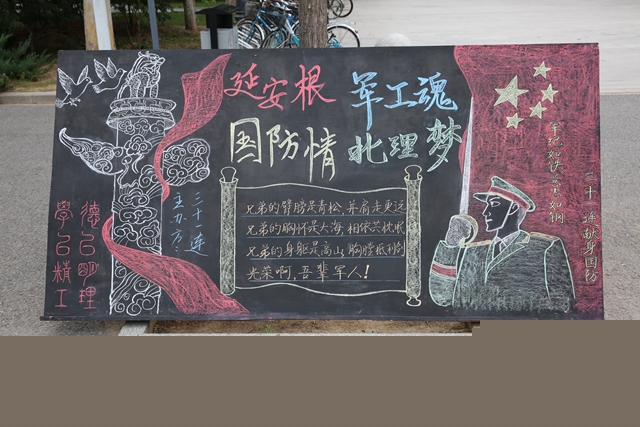 延安根 军工魂
国防情 北理梦
兄弟的臂膀是青松,并肩走更远
兄弟的胸怀是大海,相依共枕眠
兄弟的身躯是高山,胸膛抵利剑
光荣啊,吾辈军人!
德以明理
学以精工
三十一连
主办方:
军纪如铁 意志如钢
三十一连献身国防